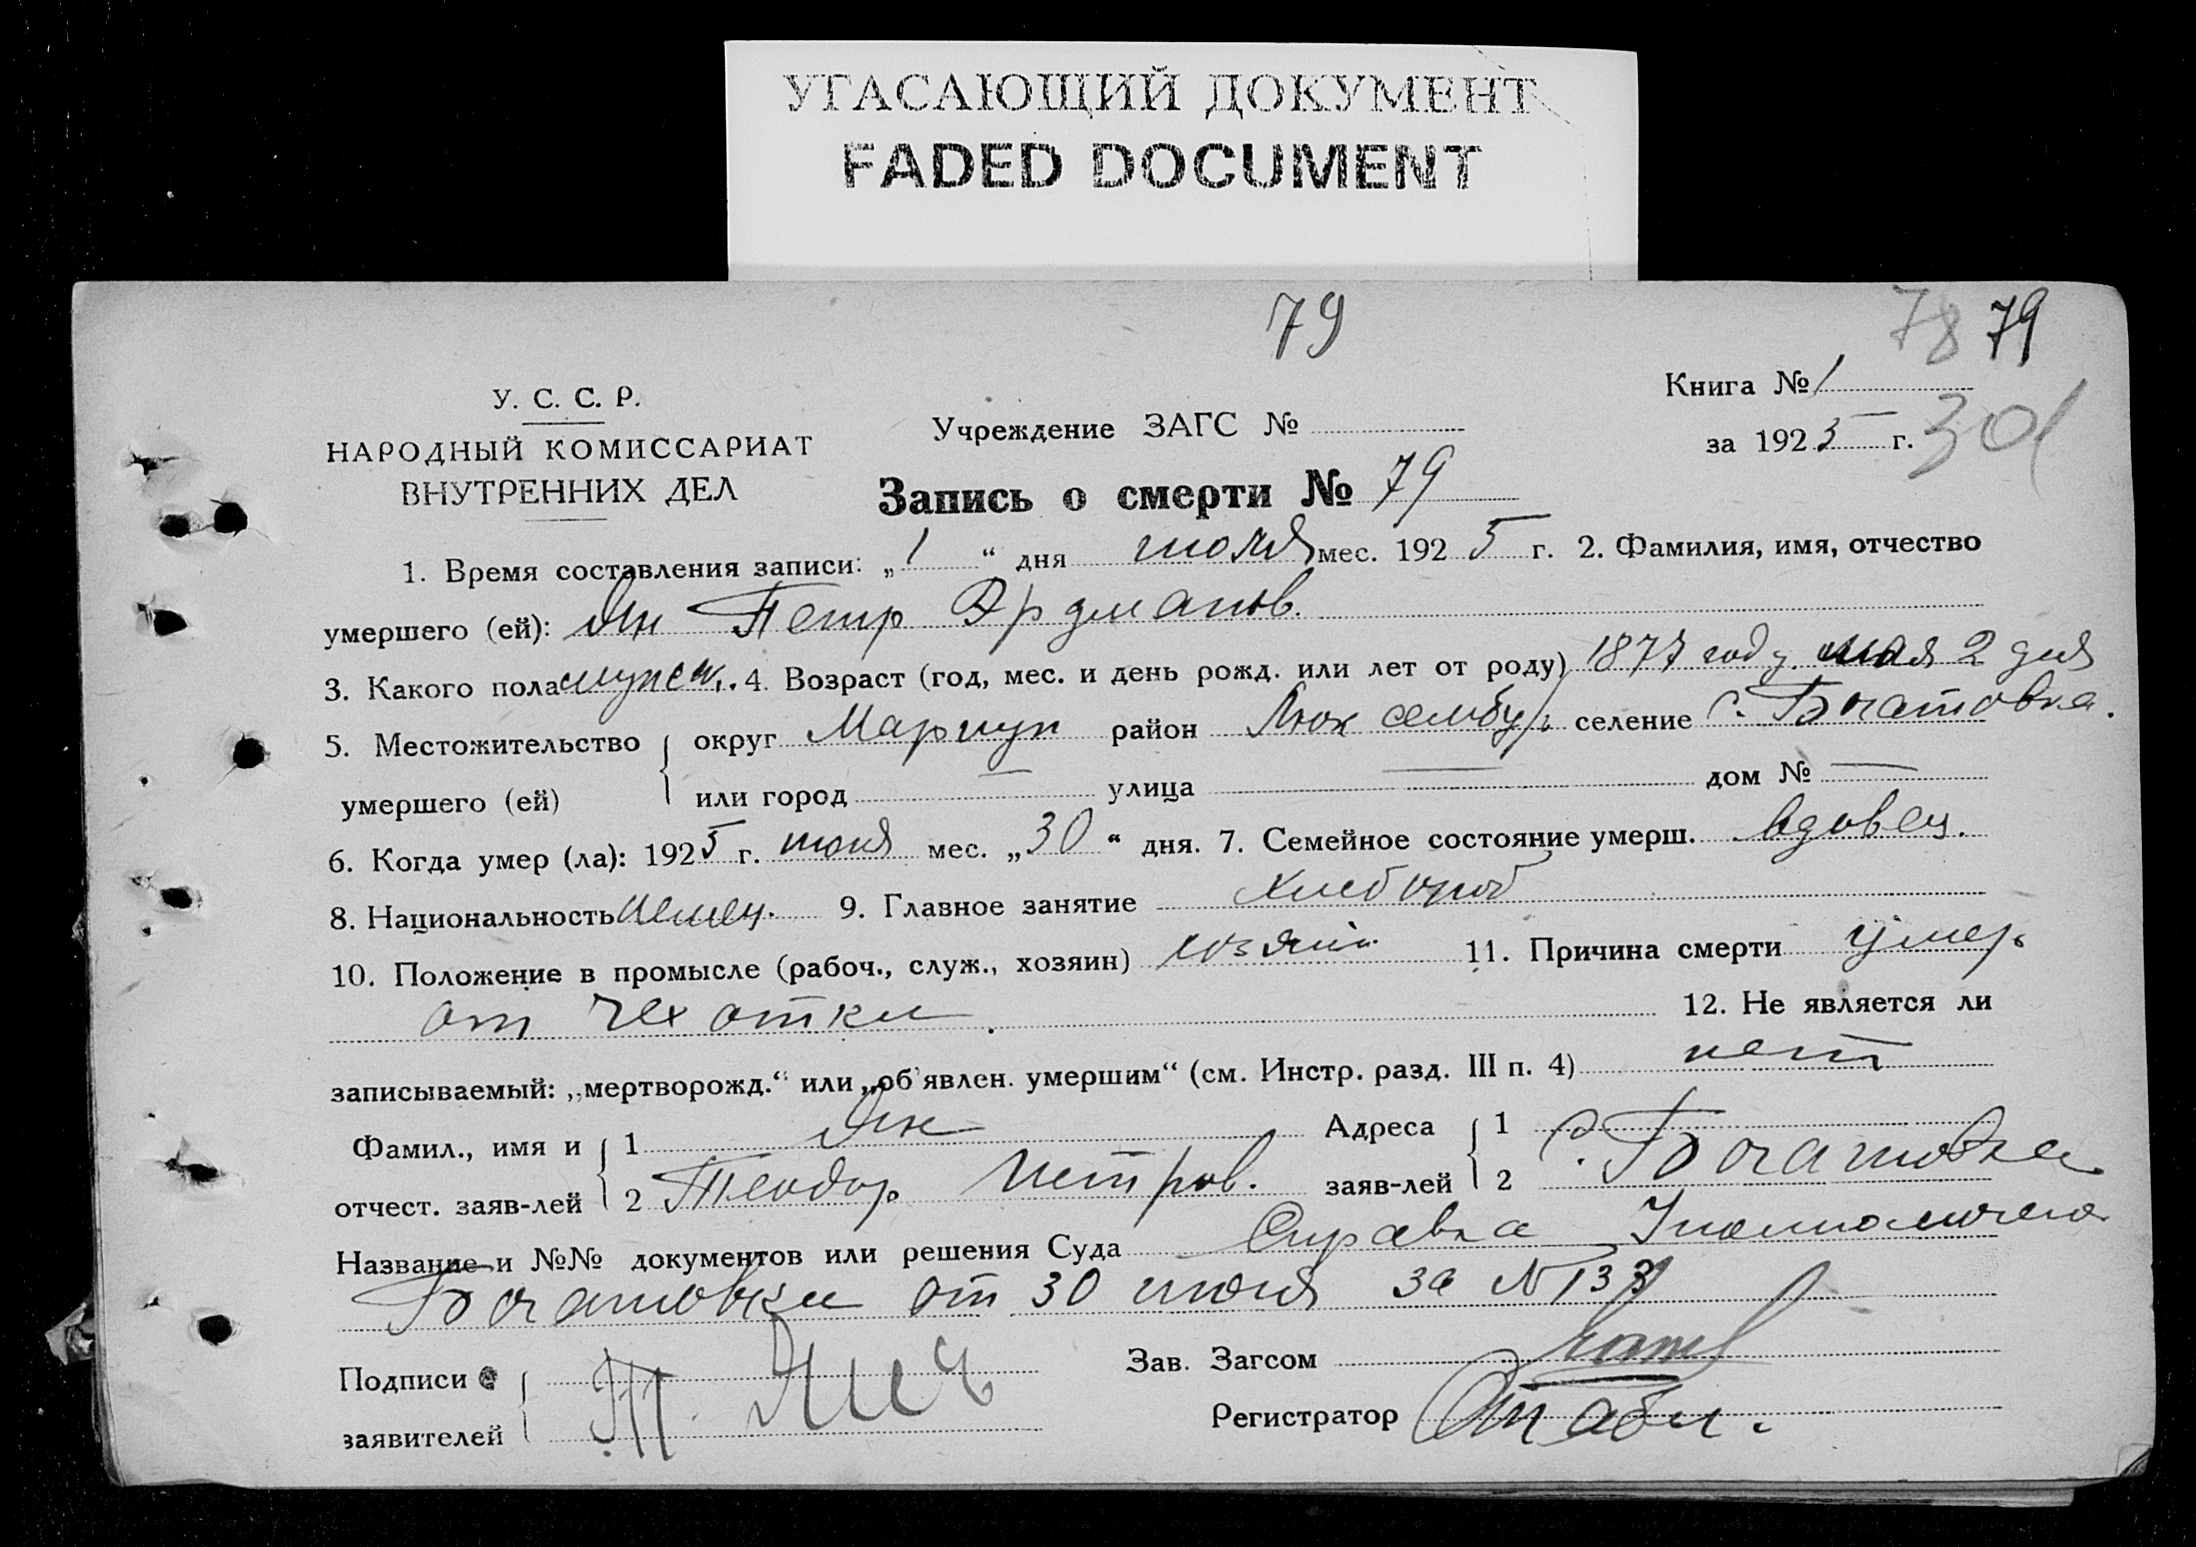 УГАСАЮЩИЙ ДОКУМЕНТ
FADED DOCUMENT
79
78 79
У. С. С. Р.
НАРОДНЫЙ КОМИССАРИАТ
ВНУТРЕННИХ ДЕЛ
Учреждение ЗАГС №
Книга № 1
за 1925 г. 301
Запись о смерти № 79
1. Время составления записи: „1“ дня июля мес. 1925 г. 2. Фамилия, имя, отчество
умершего (ей): Ян Петр Эрдманов.
3. Какого пола мужск. 4. Возраст (год, мес. и день рожд. или лет от роду) 1877 году мая 2 дня
5. Местожительство округ Мариуп район Люксембур селение с. Богатовка.
умершего (ей) или город — улица — дом № —
6. Когда умер (ла): 1925 г. июня мес. „30“ дня. 7. Семейное состояние умерш. вдовец.
8. Национальность немец. 9. Главное занятие хлебороб
10. Положение в промысле (рабоч., служ., хозяин) хозяин 11. Причина смерти умер
от чехотки.
12. Не является ли
записываемый: „мертворожд.“ или „об'явлен. умершим“ (см. Инстр. разд. III п. 4) нет
Фамил., имя и 1 Ян Адреса 1 с. Богатовка
отчест. заяв-лей 2 Теодор Петров. заяв-лей 2
Название и №№ документов или решения Суда Справка
Богатовки от 30 июня за N 133
Подписи
заявителей Т. Янъ
Зав. Загсом
Регистратор